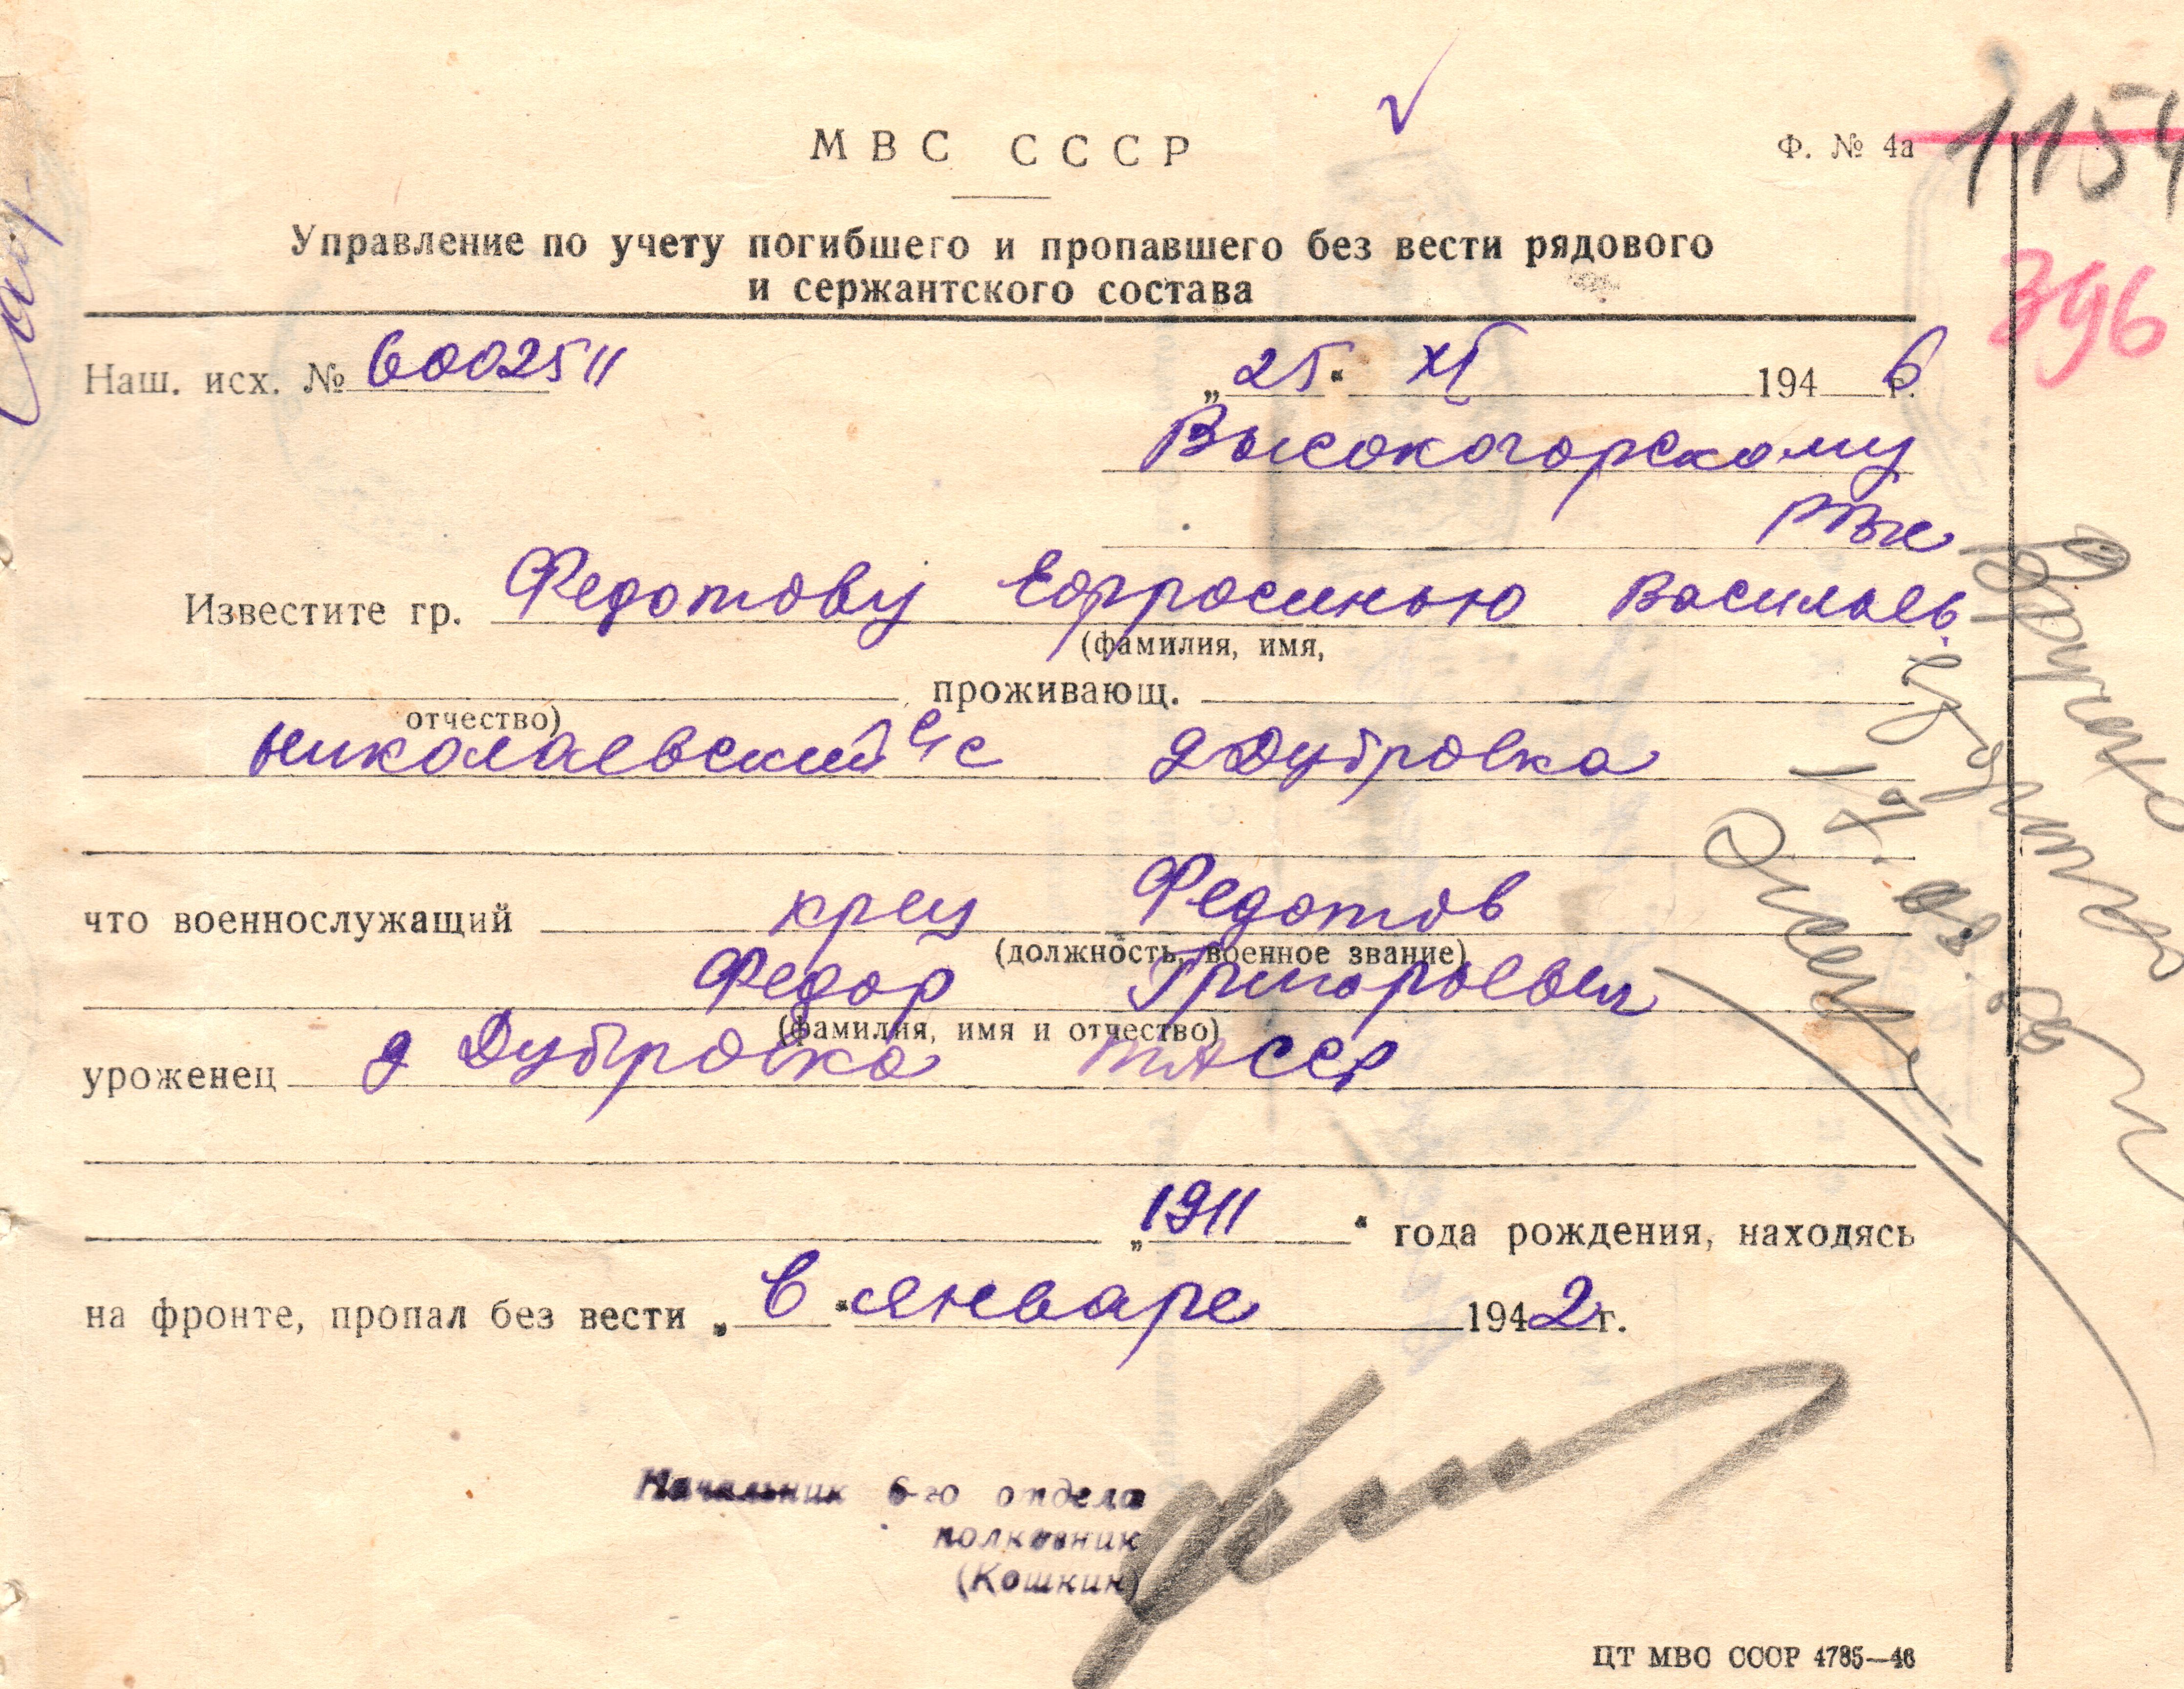 МВС СССР
Ф. № 4а
1154
396
Управление по учету погибшего и пропавшего без вести рядового
и сержантского состава
Наш. исх. № 6002511 „25“ XI 1946 г.
Высокогорскому
РВК
Известите гр. Федотову Ефросинью Василье
(фамилия, имя,
проживающ.
отчество)
Николаевский с/с д Дубровка
что военнослужащий кр-ец Федотов
(должность, военное звание)
Федор Григорьевич
(фамилия, имя и отчество)
уроженец д Дубровка ТАССР
„1911“ года рождения, находясь
на фронте, пропал без вести „в“ январе 1942 г.
Начальник 6-го отдела
полковник
(Кошкин)
ЦТ МВС СССР 4785—46
Вручено